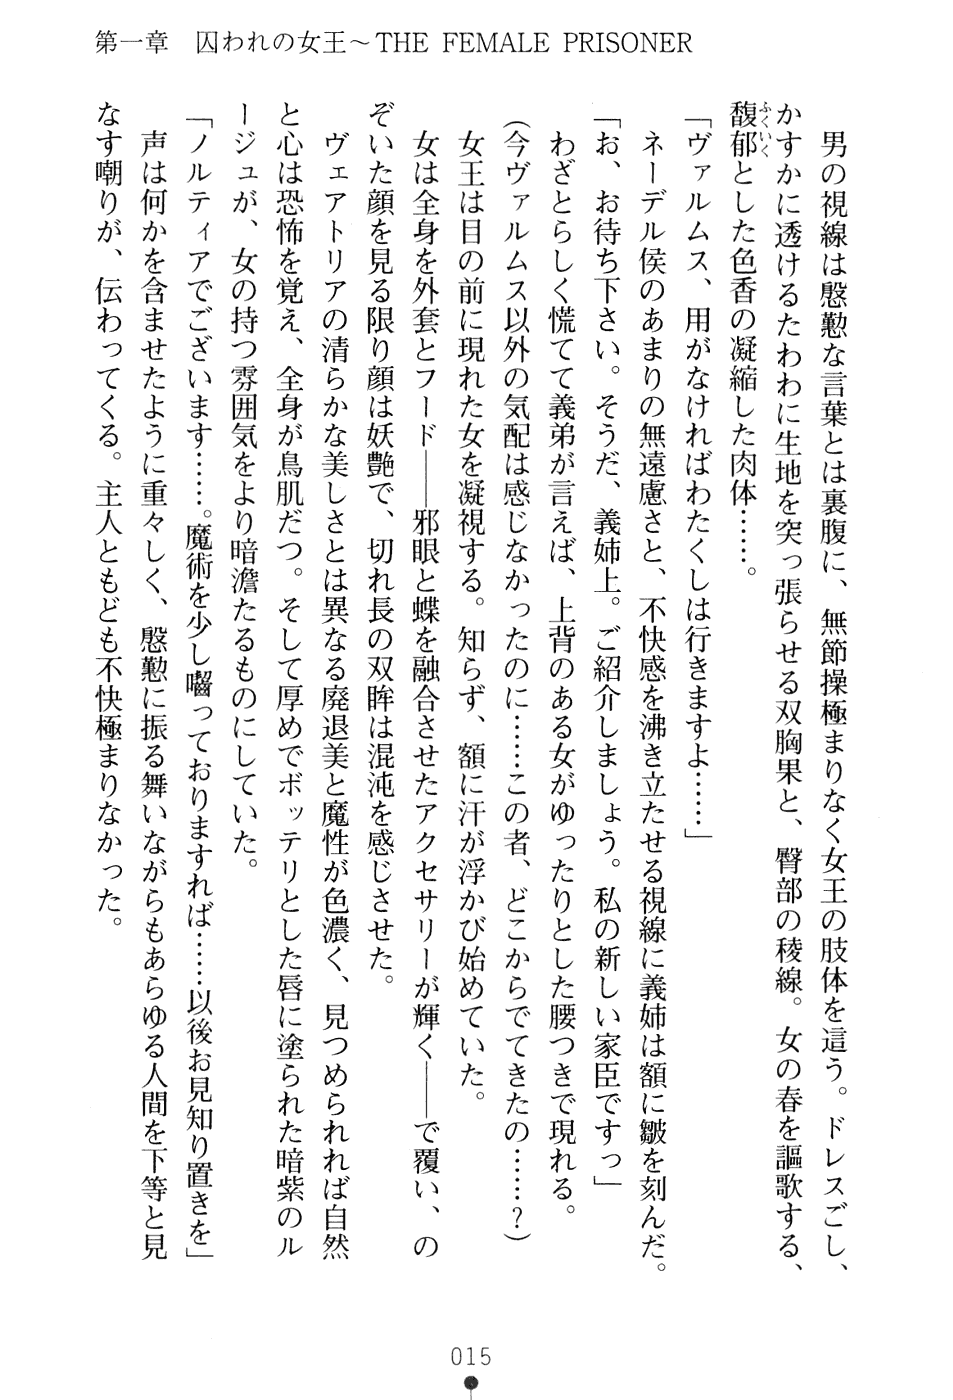 第一章　囚われの女王～THE FEMALE PRISONER
　男の視線は慇懃な言葉とは裏腹に、無節操極まりなく女王の肢体を這う。ドレスごし、
かすかに透けるたわわに生地を突っ張らせる双胸果と、臀部の稜線。女の春を謳歌する、
馥郁とした色香の凝縮した肉体……。
ふくいく
「ヴァルムス、用がなければわたくしは行きますよ……」
　ネーデル侯のあまりの無遠慮さと、不快感を沸き立たせる視線に義姉は額に皺を刻んだ。
「お、お待ち下さい。そうだ、義姉上。ご紹介しましょう。私の新しい家臣ですっ」
　わざとらしく慌てて義弟が言えば、上背のある女がゆったりとした腰つきで現れる。
（今ヴァルムス以外の気配は感じなかったのに……この者、どこからでてきたの……？）
　女王は目の前に現れた女を凝視する。知らず、額に汗が浮かび始めていた。
　女は全身を外套とフード――邪眼と蝶を融合させたアクセサリーが輝く――で覆い、の
ぞいた顔を見る限り顔は妖艶で、切れ長の双眸は混沌を感じさせた。
　ヴェアトリアの清らかな美しさとは異なる廃退美と魔性が色濃く、見つめられれば自然
と心は恐怖を覚え、全身が鳥肌だつ。そして厚めでボッテリとした唇に塗られた暗紫のル
ージュが、女の持つ雰囲気をより暗澹たるものにしていた。
「ノルティアでございます……。魔術を少し囓っておりますれば……以後お見知り置きを」
　声は何かを含ませたように重々しく、慇懃に振る舞いながらもあらゆる人間を下等と見
なす嘲りが、伝わってくる。主人ともども不快極まりなかった。
015